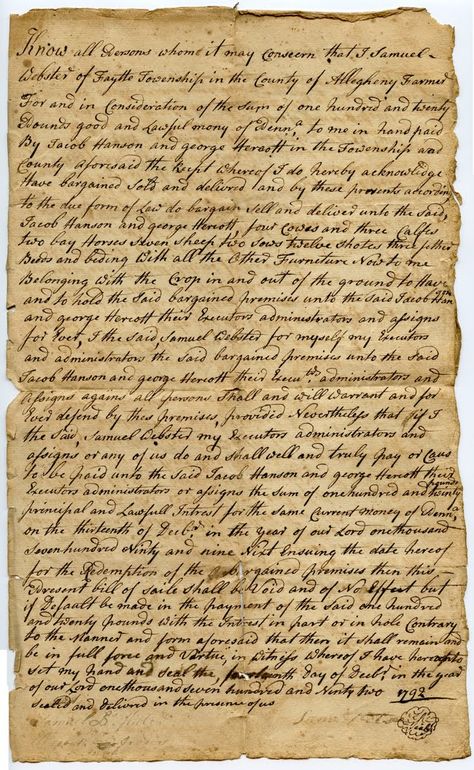 Know all Persons whome it may Conseern that I Samuel
Webster of Faytte Township in the County of Allegheny Farmer
For and in Consideration of the Sum of one hundred and twenty
Pounds good and Lawful mony of Penn,a to me in hand paid
By Jacob Hanson and george Hercott in the Township and
County aforesaid the Recipt Whereof I do hereby acknowledge
Have bargained Sold and delivered and by these presents according
to the due form of Law do bargain Sell and deliver unto the Said,
Jacob Hanson and george Hercott, four Cowes and three Calfes
two bay Horses Seven Sheep two Sows twelve Shotes three fether
Beds and beding With all the Other Furniture Now to me
Belonging With the Crop in and out of the ground to Have
and to hold the Said bargained premises unto the Said Jacob Hanson
and george Hercott their Executors administrators and assigns
for Ever, I the Said Samuel Webster for myself my Executors
and administrators the Said bargained premises unto the Said
Jacob Hanson and george Hercott their Execut,rs administrators and
Assigns agains all persons Shall and will Warrant and for
Ever defend by thes premises, provided Nevertheless that if I
the Said, Samuel Webster my Executors administrators and
assigns or any of us do and Shall well and truly pay or Caus
to be paid unto the Said Jacob Hanson and george Hercott their
Executors administrators or assigns the Sum of one hundred and twenty pounds
principal and Lawfull Intrest for the Same Current Money of Penn,a
on the thirteenth of Decbr in the year of our Lord onethousand
Seven hundred Ninty and nine Next Ensuing the date hereof
for the Redemption of the bargained premises then this
Present bill of Saile Shall be Void and of No Effect but
if Default be made in the payment of the Said one hundred
and twenty pounds With the Intrest in part or in hole Contrary
to the Manner and form aforesaid that then it Shall remain and
be in full force and Virtue, in Witness Whereof I have hereunto
set my hand and Seal the, fourteenth Day of Decbr in the year
of our Lord onethousand Seven hundred and Ninty two 1792
Sealed and delivered in the presence of us